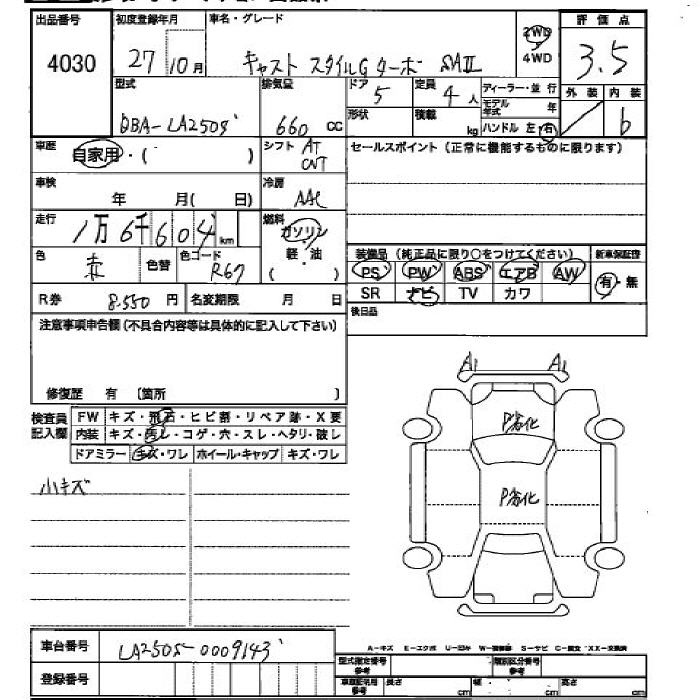 出品番号 4030
初度登録年月 27 10月
車名・グレード キャスト スタイルG ターボ SAⅡ
2WD
4WD
評価点 3.5
型式 DBA-LA250S
排気量 660 CC
ドア 5
定員 4人
ディーラー・並行
モデル年式 年
外装 内装 b
形状
積載 kg
ハンドル 左・右
車歴 自家用・( )
シフト AT CVT
セールスポイント (正常に機能するものに限ります)
車検 年 月( 日)
冷房 AAC
走行 1万6千604 km
燃料 ガソリン
軽・油
( )
色 赤 色替 色コード R67
装備品 (純正品に限り○をつけてください) 新車保証書
PS PW ABS エアB AW 有・無
SR ナビ TV カワ
R券 8,550 円 名変期限 月 日
後日品
注意事項申告欄(不具合内容等は具体的に記入して下さい)
修復歴 有 〔箇所 〕
検査員記入欄
FW キズ・飛石・ヒビ割・リペア跡・X要
内装 キズ・汚レ・コゲ・穴・スレ・ヘタリ・破レ
ドアミラー キズ・ワレ ホイール・キャップ キズ・ワレ
小キズ
A1 A1
P劣化
P劣化
車台番号 LA250S-0009143
登録番号
A-キズ E-エクボ U-凹み W-補修跡 S-サビ C-腐食 XX-交換済
型式指定番号 参考
類別区分番号 参考
車車証記載用 参考 長さ cm 幅 cm 高さ cm